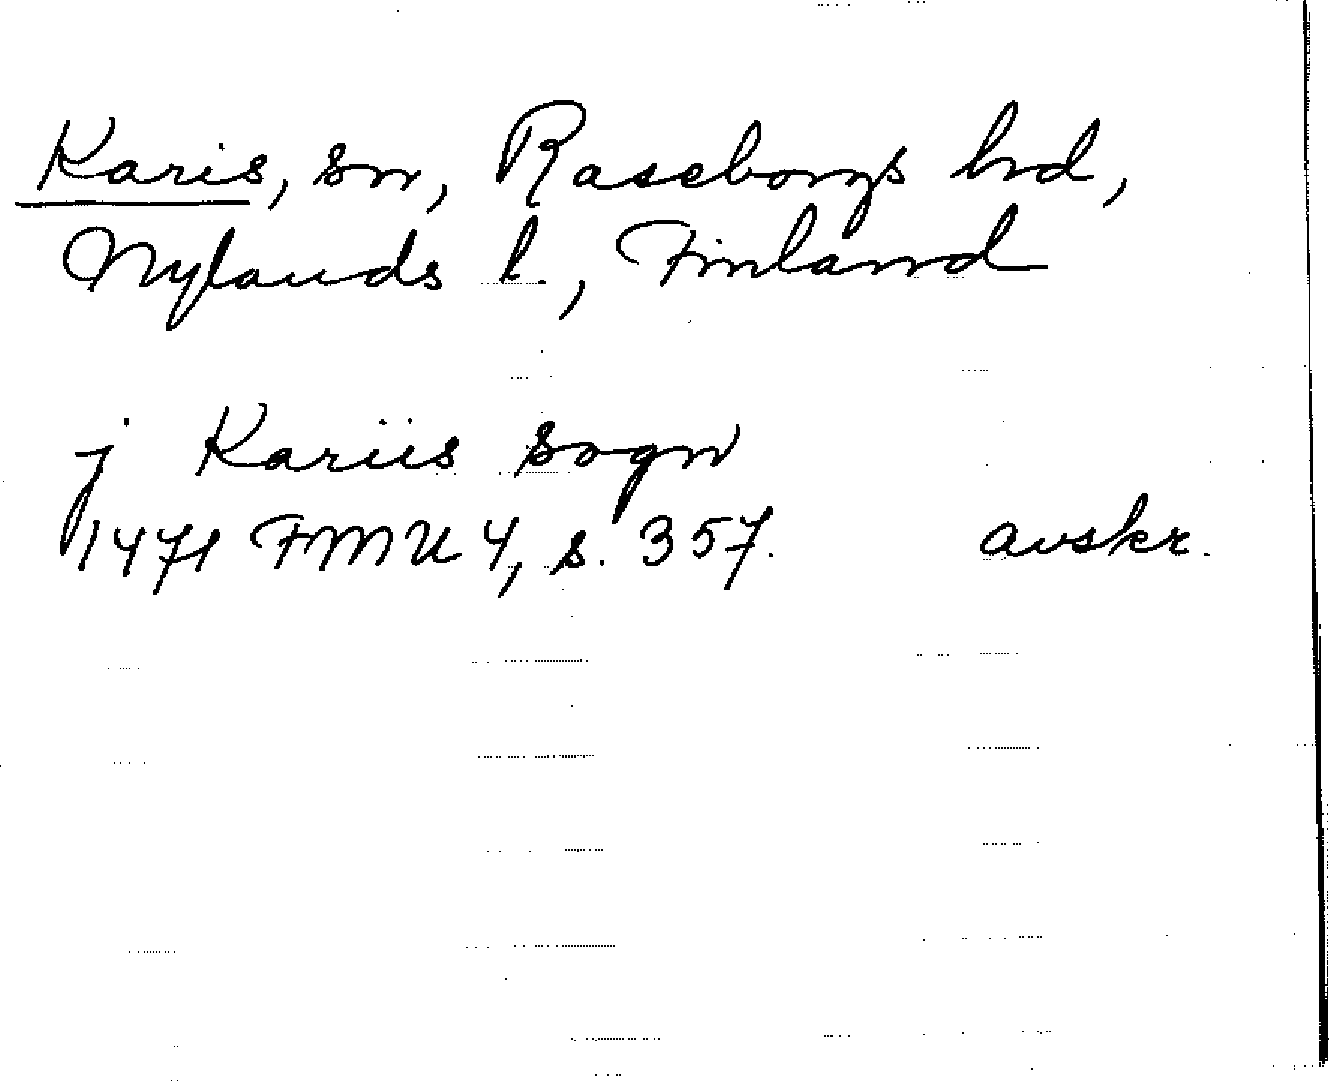 Karis, sn, Raseborgs hd,
Nylands l., Finland
j Kariis sogn
1471 FMU 4, s. 357. avskr.